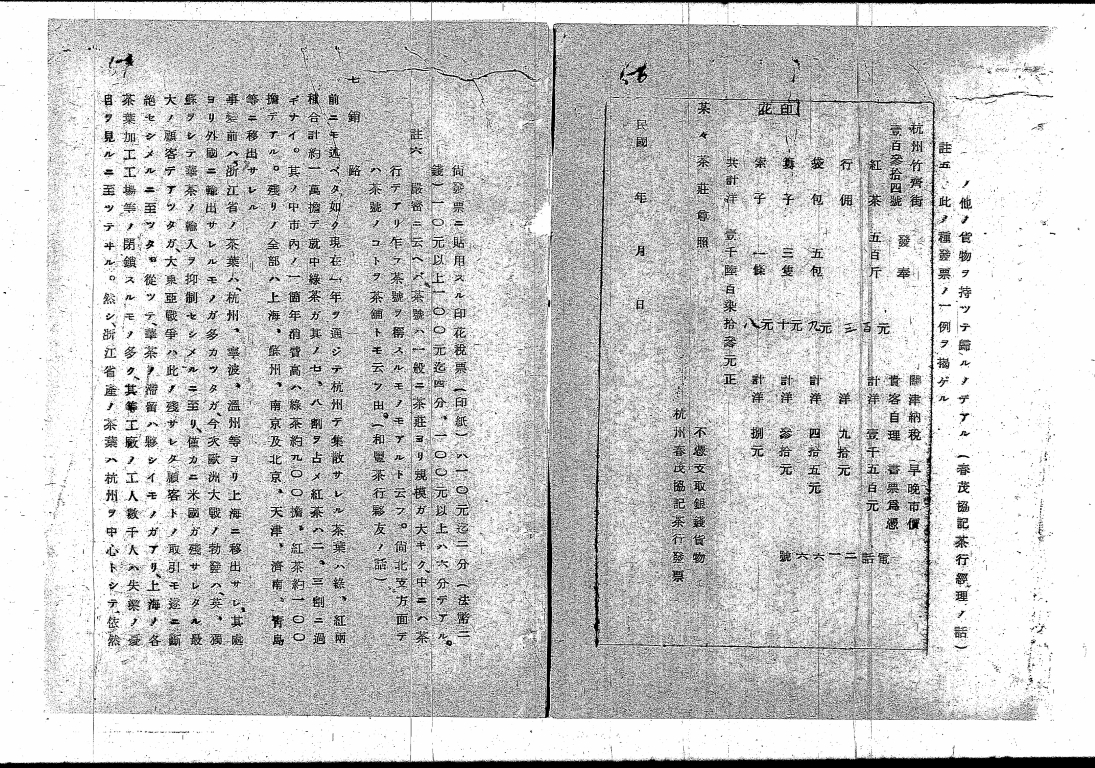 ノ他ノ貨物ヲ持ツテ歸ルノデアル（春茂協記茶行經理ノ話）
註五、此ノ種發票ノ一例ヲ揭ゲル
杭州竹齋街
壹百參拾四號
發奉
關津納稅　早晚市價
貴客自理　書票爲憑
紅茶　五百斤　三百元　計洋　壹千五百元
行佣　洋　九拾元
袋包　五包　九元　計洋　四拾五元
簍子　三隻　十元　計洋　參拾元
索子　一條　八元　計洋　捌元
電話二一六六號
共計洋　壹千陸百柒拾參元正
印花
茶々茶莊尊照
不憑支取銀錢貨物
杭州春茂協記茶行發票
民國　年　月　日
尙發票ニ貼用スル印花稅票（印紙）ハ一〇元迄二分（法幣二
錢）一〇元以上一〇〇元迄四分、一〇〇元以上ハ六分デアル。
註六　嚴密ニ云ヘバ茶號ハ一般ニ茶莊ヨリ規模ガ大キク、中ニハ茶
行デアリ乍ラ茶號ヲ稱スルモノモアルト云フ。尙北支方面デ
ハ茶號ノコトヲ茶舖トモ云フ由。（和豐茶行夥友ノ話）
七　銷路
前ニモ述ベタ如ク現在一年ヲ通ジテ杭州デ集散サレル茶葉ハ綠、紅兩
種合計約一萬擔デ就中綠茶ガ其ノ七、八割ヲ占メ紅茶ハ二、三割ニ過
ギナイ。其ノ中市內ノ一箇年消費高ハ綠茶約九〇〇擔、紅茶約一〇〇
擔デアル。殘リノ全部ハ上海、蘇州、南京及北京、天津、濟南、靑島
等ニ移出サレル
事變前ハ、浙江省ノ茶葉ハ、杭州、寧波、溫州等ヨリ上海ニ移出サレ、其處
ヨリ外國ニ輸出サレルモノガ多カツタガ、今次歐洲大戰ノ勃發ハ、英、獨
蘇ヲシテ華茶ノ輸入ヲ抑制セシメルニ至リ、僅カニ米國ガ殘サレタル最
大ノ顧客デアツタガ、大東亞戰爭ハ此ノ殘サレタ顧客トノ取引モ遂ニ斷
絕セシメルニ至ツタ。從ツテ、華茶ノ滯留ハ夥シイモノガアリ、上海ノ各
茶葉加工工場等ノ閉鎖スルモノ多ク、其等工廠ノ工人數千人ハ失業ノ憂
目ヲ見ルニ至ツテヰル。然シ、浙江省產ノ茶葉ハ杭州ヲ中心トシテ、依然